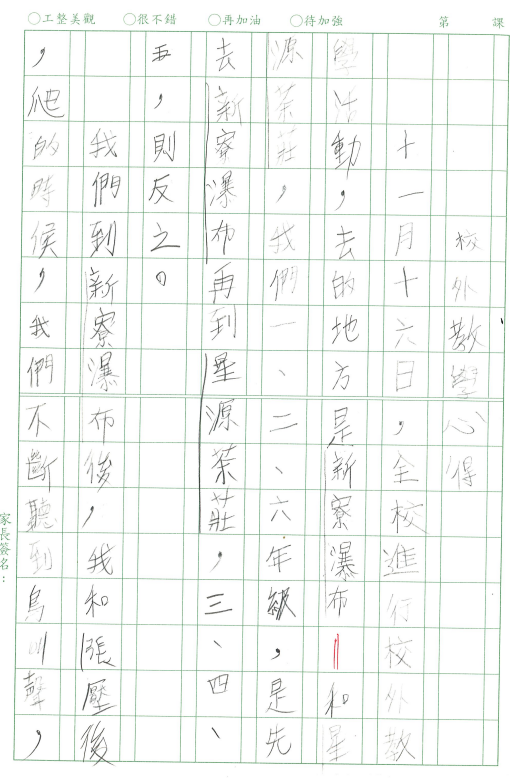 ○工整美觀 ○很不錯 ○再加油 ○待加強 第 課
校外教學心得
十一月十六日,全校進行校外教
學活動,去的地方是新寮瀑布和星
源茶莊,我們一、二、六年級,是先
去新寮瀑布再到星源茶莊,三、四、
五,則反之。
我們到新寮瀑布後,我和張壓後
,爬的時候,我們不斷聽到鳥叫聲,
家長簽名: